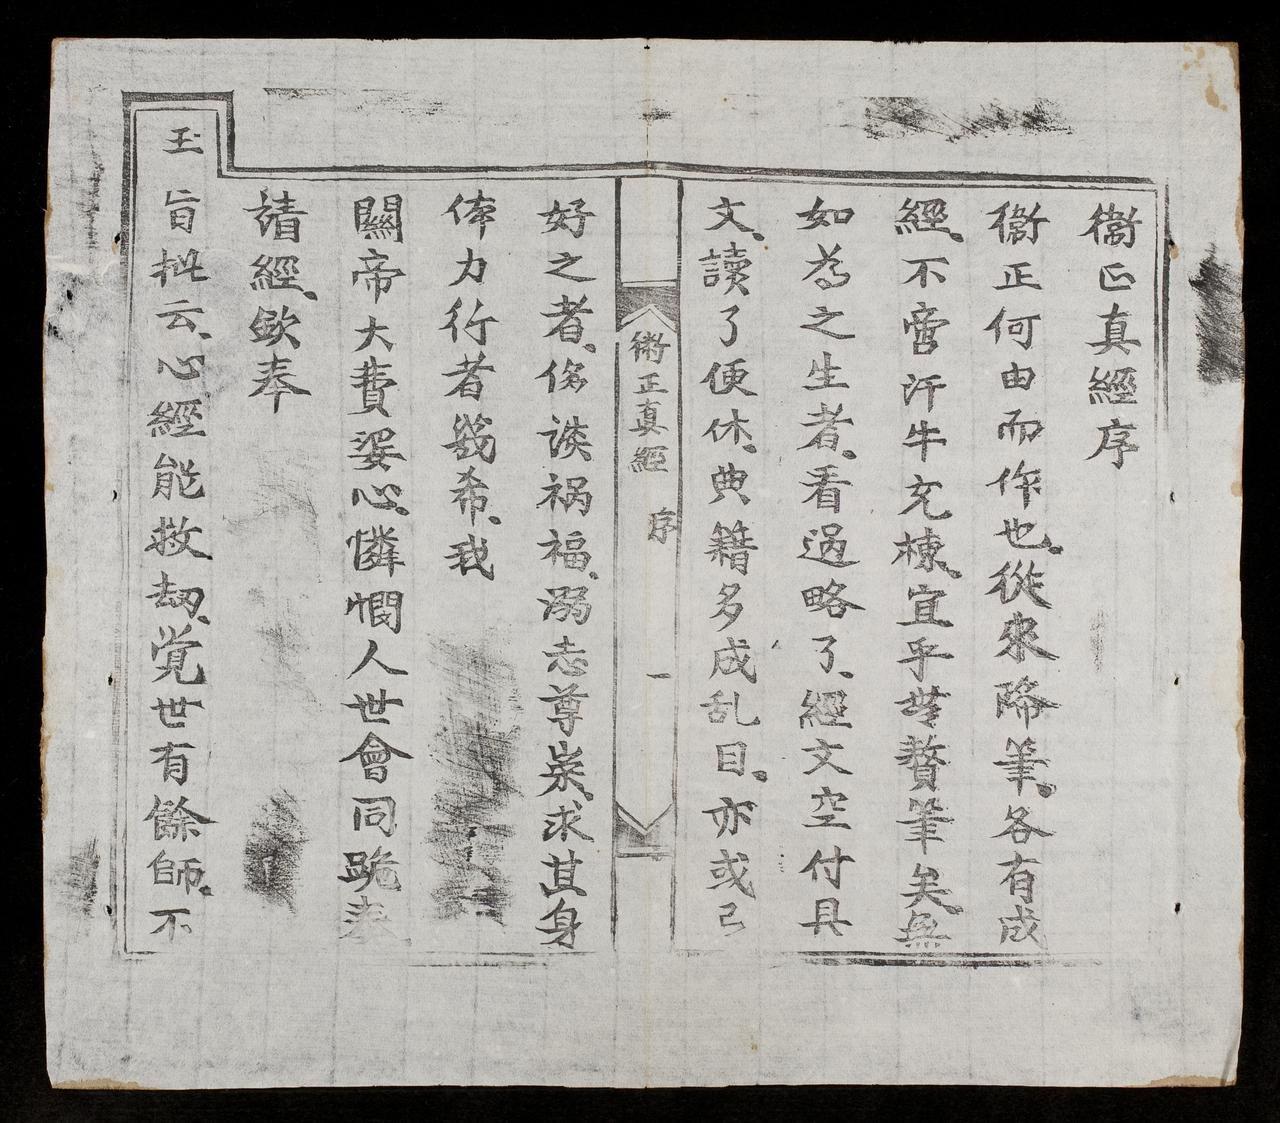 衞正真經序
衞正何由而作也、從來降筆、各有成
經、不啻汗牛充棟、宜乎無贅筆矣、無
如為之生者、看過略了、經文空付具
文、讀了便休、典籍多成乱目、亦或已
衞正真經 序 一
好之者、侈談禍福、溺志尊崇、求其身
体力行者㡬希、我
關帝大費婆心、憐憫人世會同跪表
請經、欽奉
玉旨批云、心經能救劫、覚世有餘師、不